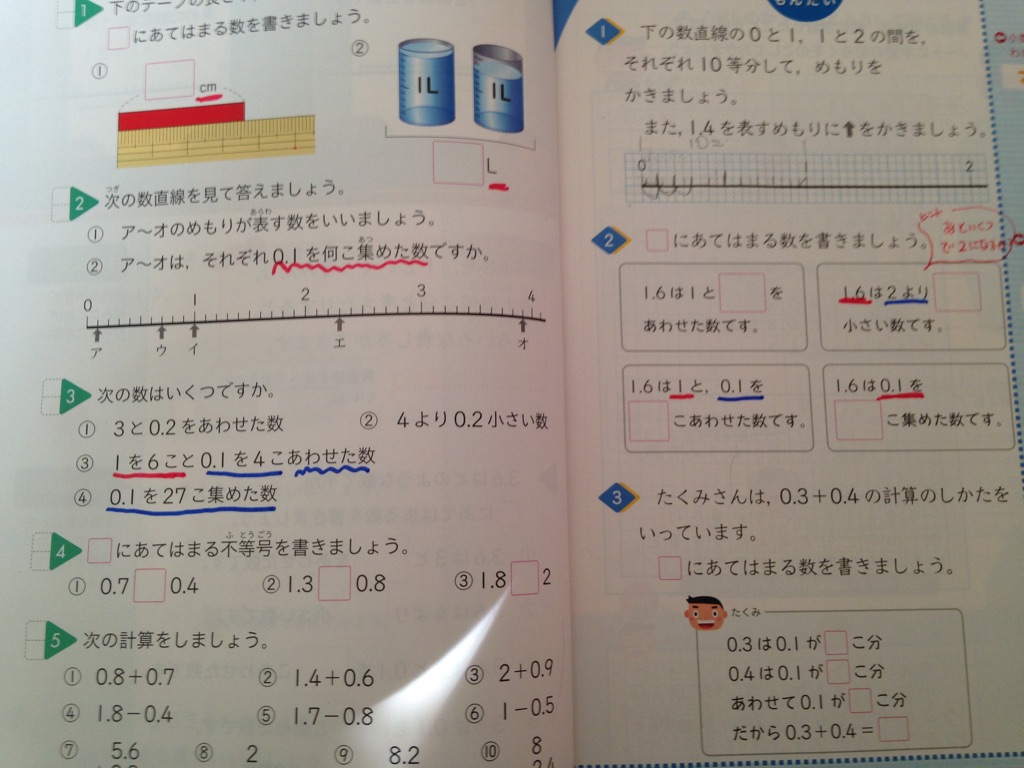 1 下のテープの長さ
□にあてはまる数を書きましょう。
① □ cm
② 1L 1L
□ L
2 次の数直線を見て答えましょう。
① ア～オのめもりが表す数をいいましょう。
② ア～オは，それぞれ0.1を何こ集めた数ですか。
0 1 2 3 4
ア ウ イ エ オ
3 次の数はいくつですか。
① 3と0.2をあわせた数 ② 4より0.2小さい数
③ 1を6こと0.1を4こあわせた数
④ 0.1を27こ集めた数
4 □にあてはまる不等号を書きましょう。
① 0.7□0.4 ② 1.3□0.8 ③ 1.8□2
5 次の計算をしましょう。
① 0.8＋0.7 ② 1.4＋0.6 ③ 2＋0.9
④ 1.8－0.4 ⑤ 1.7－0.8 ⑥ 1－0.5
⑦ 5.6 ⑧ 2 ⑨ 8.2 ⑩ 8
もんだい
1 下の数直線の0と1，1と2の間を，
それぞれ10等分して，めもりを
かきましょう。
また，1.4を表すめもりに⬆をかきましょう。
0 1 2
2 □にあてはまる数を書きましょう。
あといくつ
で2になる
1.6は1と□を
あわせた数です。
1.6は2より□
小さい数です。
1.6は1と，0.1を
□こあわせた数です。
1.6は0.1を
□こ集めた数です。
3 たくみさんは，0.3＋0.4の計算のしかたを
いっています。
□にあてはまる数を書きましょう。
たくみ
0.3は0.1が□こ分
0.4は0.1が□こ分
あわせて0.1が□こ分
だから0.3＋0.4＝□